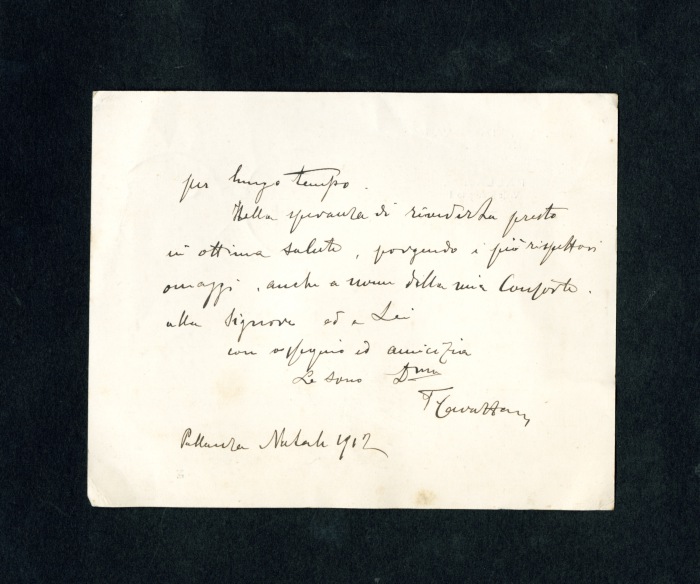 per lungo tempo.
Nella speranza di rivederLa presto
in ottima salute, porgendo i più rispettosi
omaggi, anche a nome della mia Consorte,
alla Signora ed a Lei
con ossequio ed amicizia
Le sono Dmo
Pallanza Natale 1912